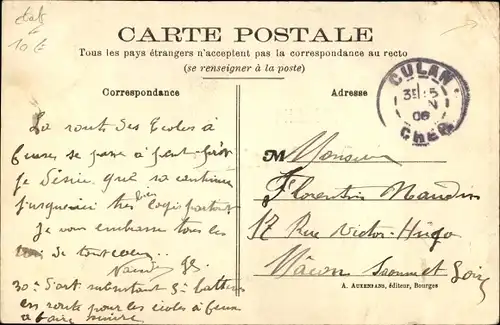 CARTE POSTALE
Tous les pays étrangers n'acceptent pas la correspondance au recto
(se renseigner à la poste)
Correspondance
Adresse
CULAN
3E 5
N
06
CHER
La route des Ecoles à
feux se passe à
je désire que sa continue
jusqu'ici très bien logis partout
Je vous embrasse tous les
de tout coeur
30e d'art 5e batterie
en route pour les écoles à feux
à faire suivre
M Monsieur
Florentin Naudin
17 Rue Victor-Hugo
Mâcon Saone et Loire
A. AUXENFANS, éditeur, Bourges